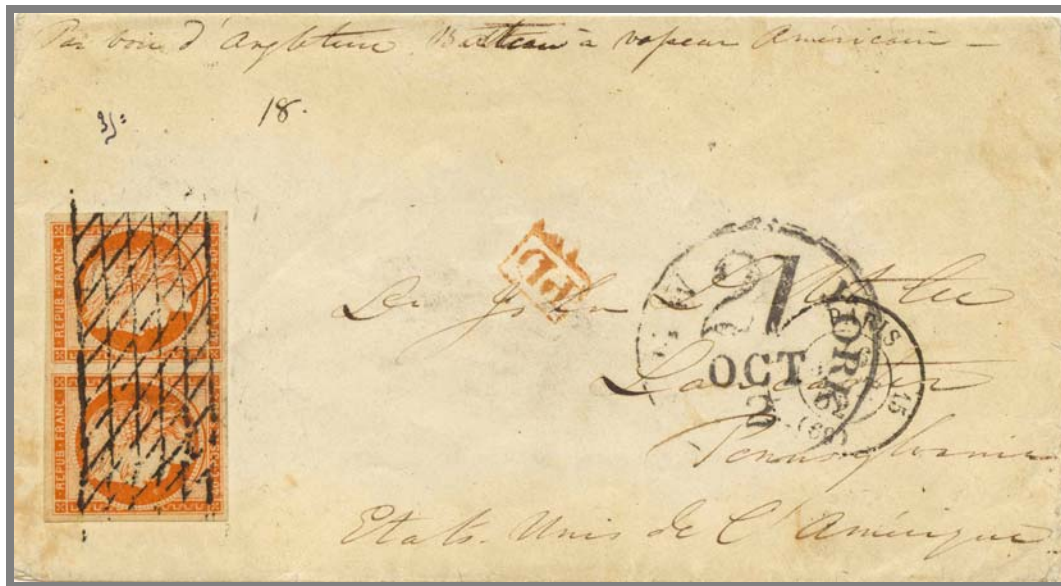 Par voie d'Angleterre Batteau à vapeur Américain –
18.
REPUB·FRANC·
REPUB·FRANC·
PD
NEW YORK
21
OCT
5
PARIS
15
(68)
Dr John
Lancaster
Pennsylvania
Etats-Unis de l'Amérique